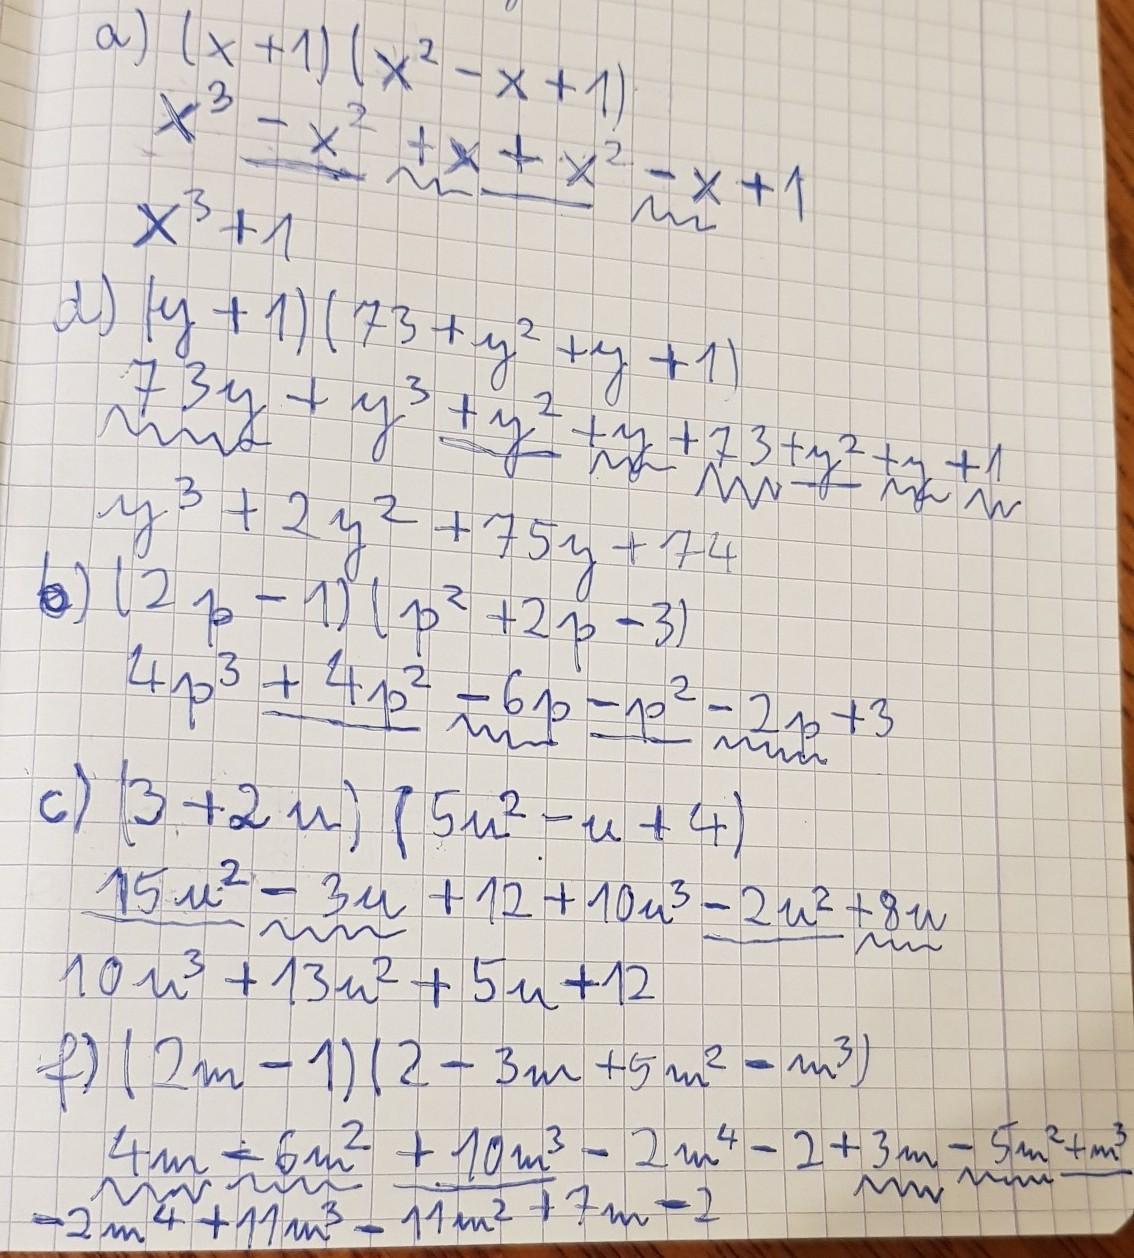 a) (x + 1) (x² - x + 1)
x³ - x² + x + x² - x + 1
x³ + 1
d) (y + 1) (73 + y² + y + 1)
73y + y³ + y² + y + 73 + y² + y + 1
y³ + 2y² + 75y + 74
b) (2p - 1) (p² + 2p - 3)
4p³ + 4p² - 6p - p² - 2p + 3
c) (3 + 2u) (5u² - u + 4)
15u² - 3u + 12 + 10u³ - 2u² + 8u
10u³ + 13u² + 5u + 12
f) (2m - 1) (2 - 3m + 5m² - m³)
4m - 6m² + 10m³ - 2m⁴ - 2 + 3m - 5m² + m³
-2m⁴ + 11m³ - 11m² + 7m - 2